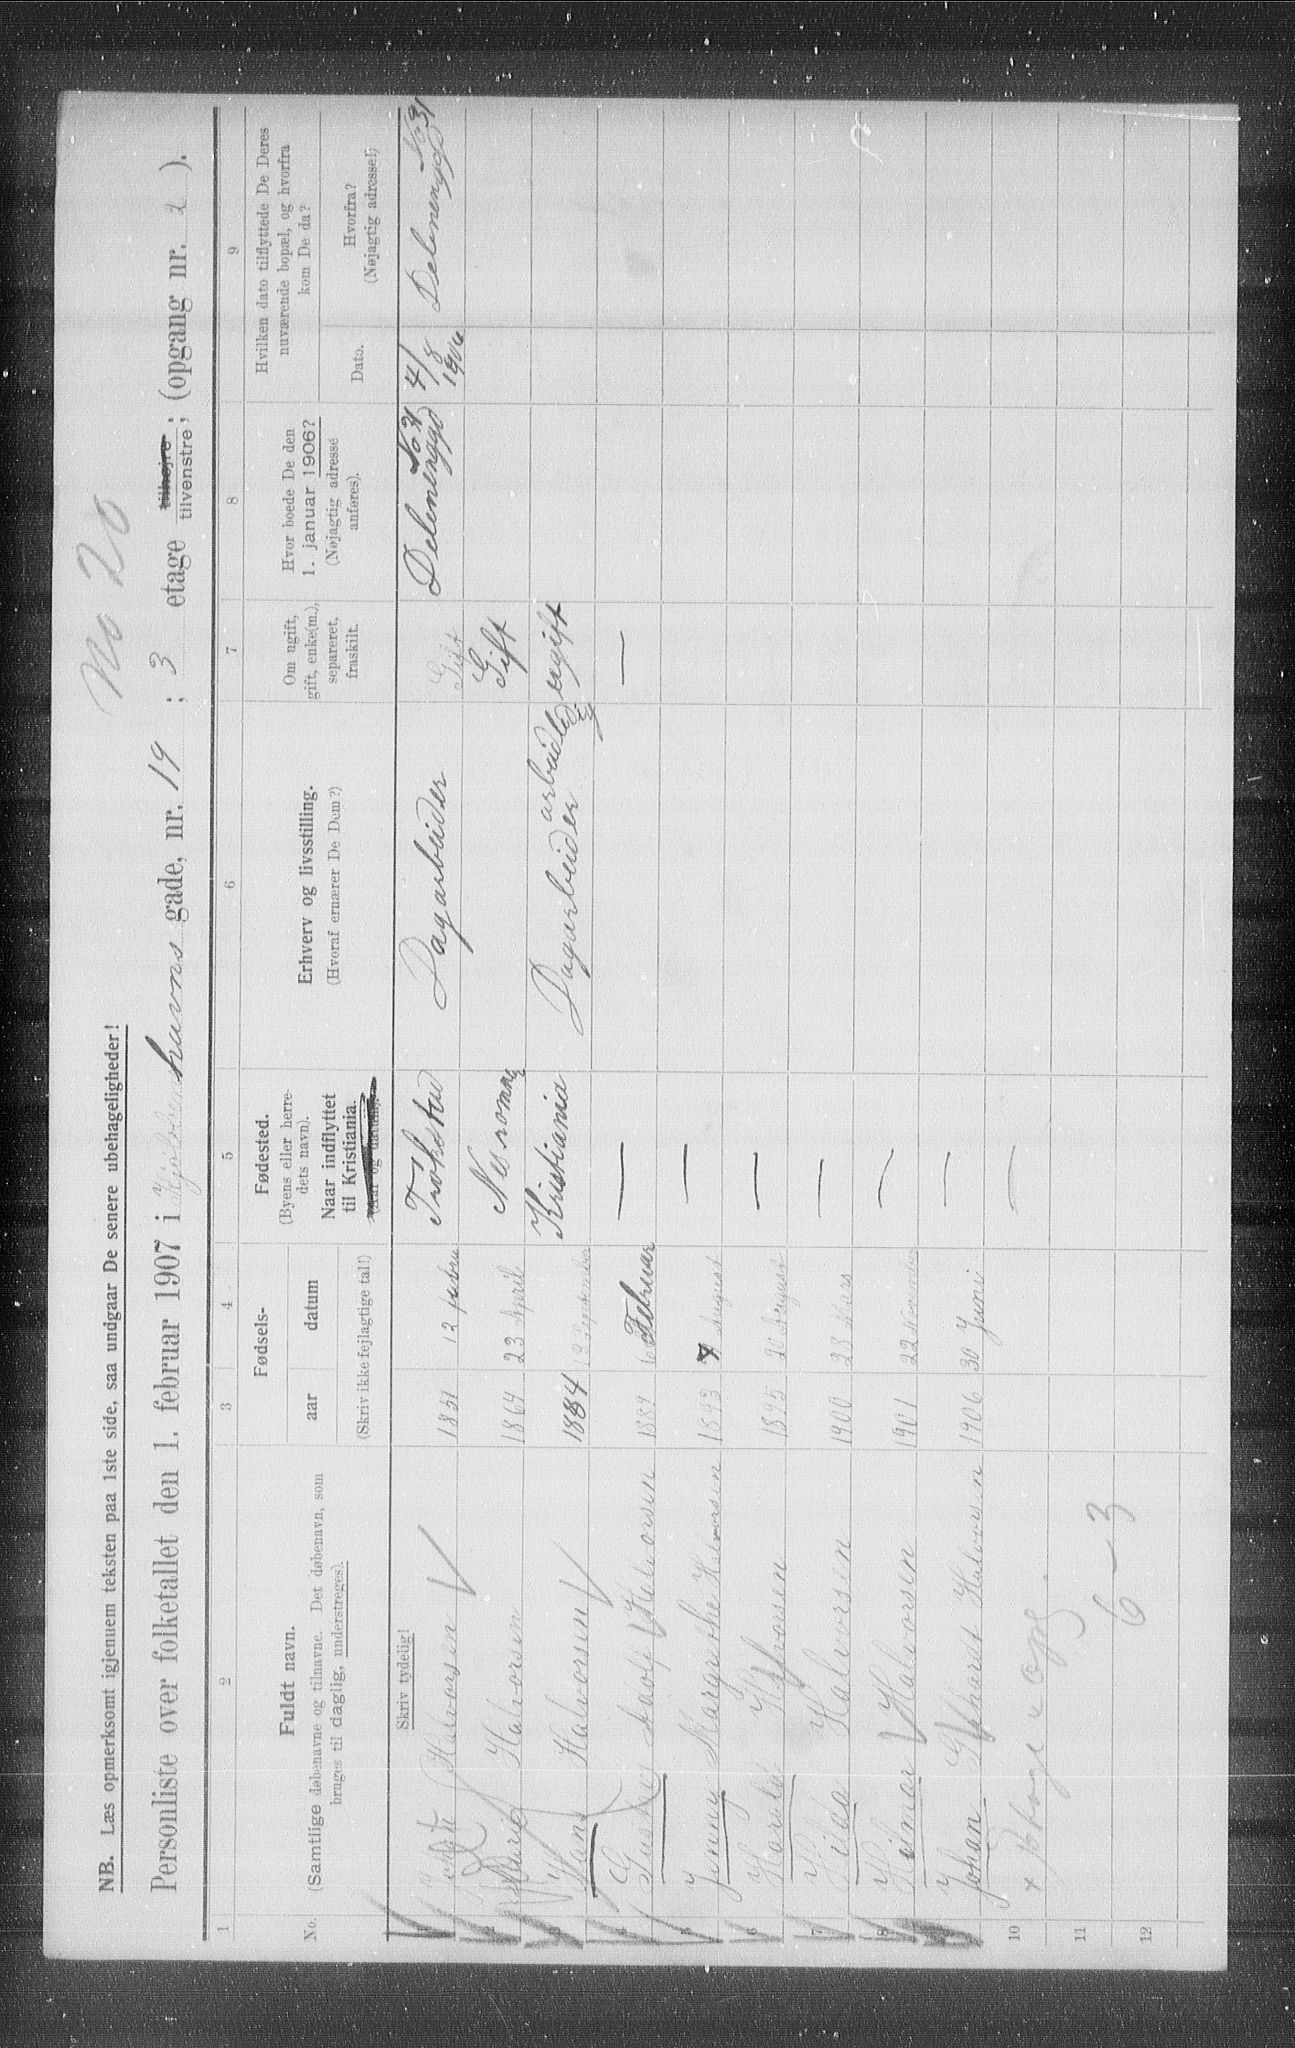 No 20
NB. Læs opmerksomt igjennem teksten paa 1ste side, saa undgaar De senere ubehageligheder!
Personliste over folketallet den 1. februar 1907 i Kjøbenhavns gade, nr. 19 ; 3 etage tilhøjre, tilvenstre; (opgang nr. 2 ).
1 2 3 4 5 6 7 8 9
No.
Fuldt navn.
(Samtlige døbenavne og tilnavne. Det døbenavn, som
bruges til daglig, understreges).
Fødsels-
aar datum
(Skriv ikke fejlagtige tal!)
Fødested.
(Byens eller herre-
dets navn).
Naar indflyttet
til Kristiania.
(Aar og datum).
Erhverv og livsstilling.
(Hvoraf ernærer De Dem?)
Om ugift,
gift, enke(m.),
separeret,
fraskilt.
Hvor boede De den
1. januar 1906?
(Nøjagtig adresse
anføres).
Hvilken dato tilflyttede De Deres
nuværende bopæl, og hvorfra
kom De da?
Dato.
Hvorfra?
(Nøjagtig adresse!)
Skriv tydelig!
1 Halvorsen 1851 12 Trøkstad Dagarbeider Gift No 31 4/8 1906 No 31
2 Marie Halvorsen 1864 23 April Gift
3 Hans Halvorsen 1884 Kristiania Dagarbeider ugift
4 Gustav Adolf Halvorsen 1889 6 Februar — —
5 Jenny Margrethe Halvorsen 1893 7 August —
6 Harald Halvorsen 1895 20 August —
7 Hilda Halvorsen 1900 28 Mars —
8 Hilmar Halvorsen 1901 22 —
9 Johan Halvorsen 1906 30 Juni —
10 —
11
12
6 – 3